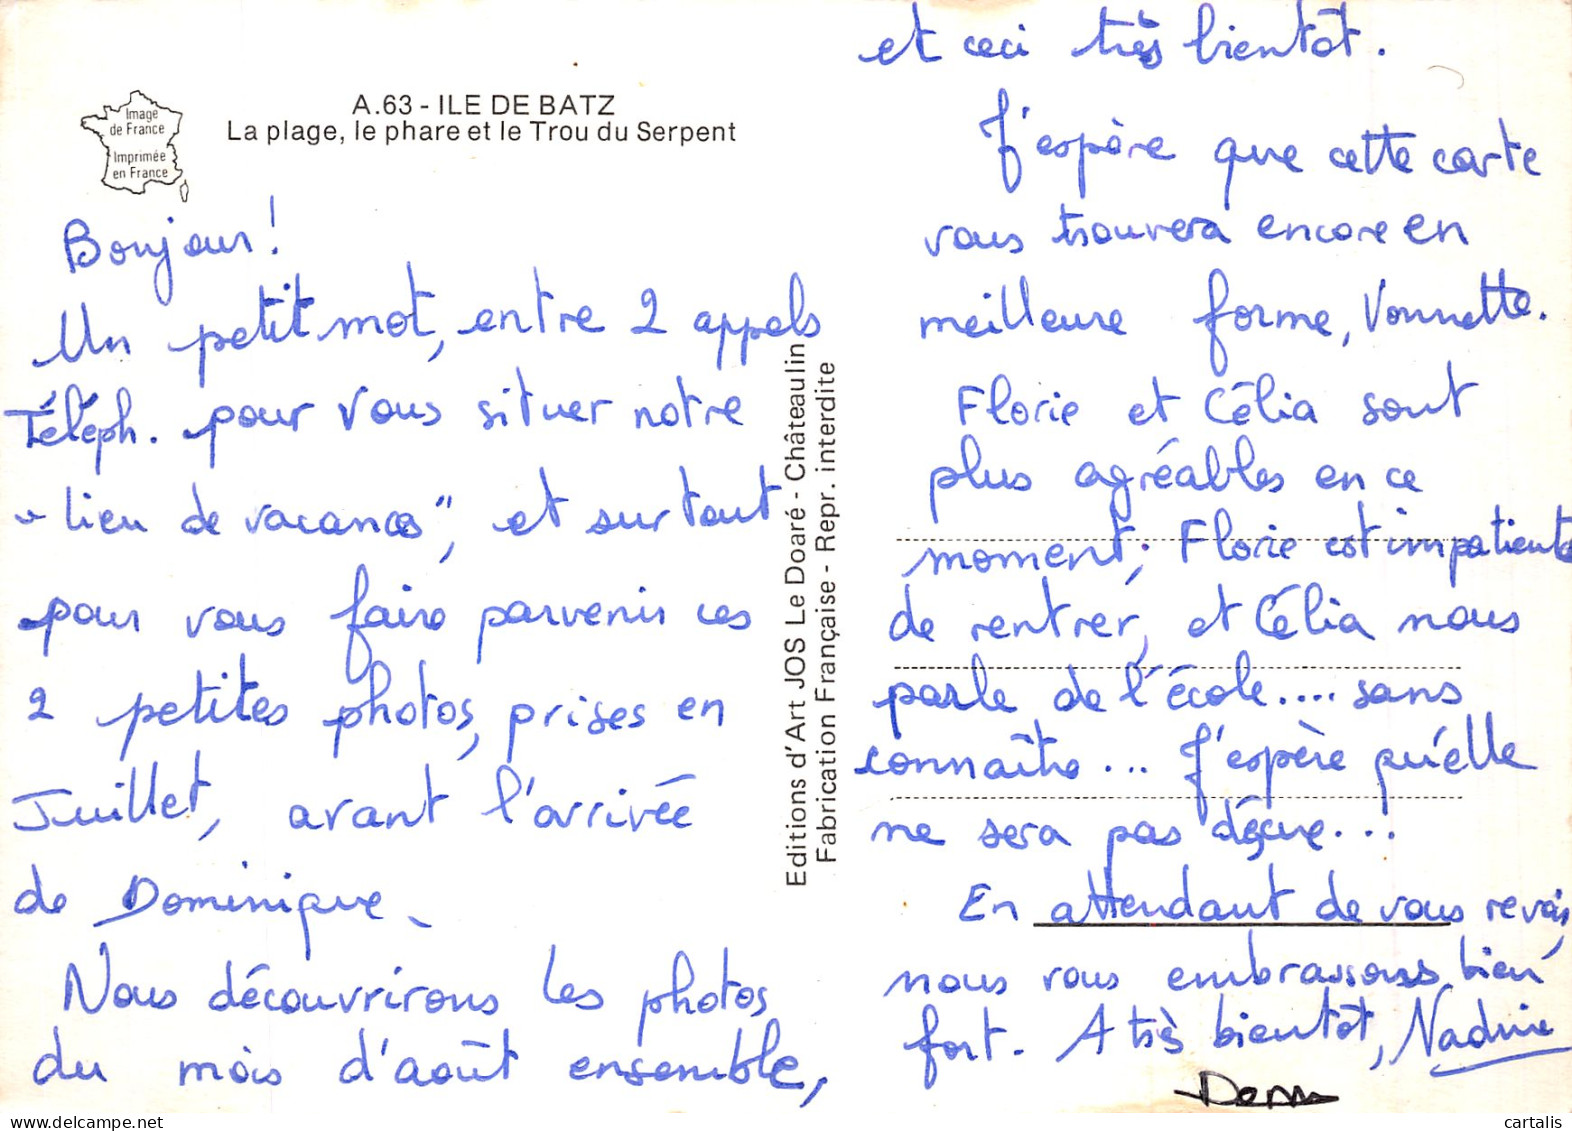 Image
de France
Imprimée
en France
A.63 - ILE DE BATZ
La plage, le phare et le Trou du Serpent
Bonjour !
Un petit mot, entre 2 appels
Téléph. pour vous situer notre
"lieu de vacances", et surtout
pour vous faire parvenir ces
2 petites photos, prises en
Juillet, avant l'arrivée
de Dominique.
Nous découvrirons les photos
du mois d'août ensemble,
Editions d'Art JOS Le Doaré - Châteaulin
Fabrication Française - Repr. interdite
et ceci très bientôt.
J'espère que cette carte
vous trouvera encore en
meilleure forme, Vonnette.
Florie et Célia sont
plus agréables en ce
moment; Florie est impatiente
de rentrer, et Célia nous
parle de l'école.... sans
connaître... J'espère qu'elle
ne sera pas déçue...
En attendant de vous revoir,
nous vous embrassons bien
fort. A très bientôt, Nadine
Dom
cartalis